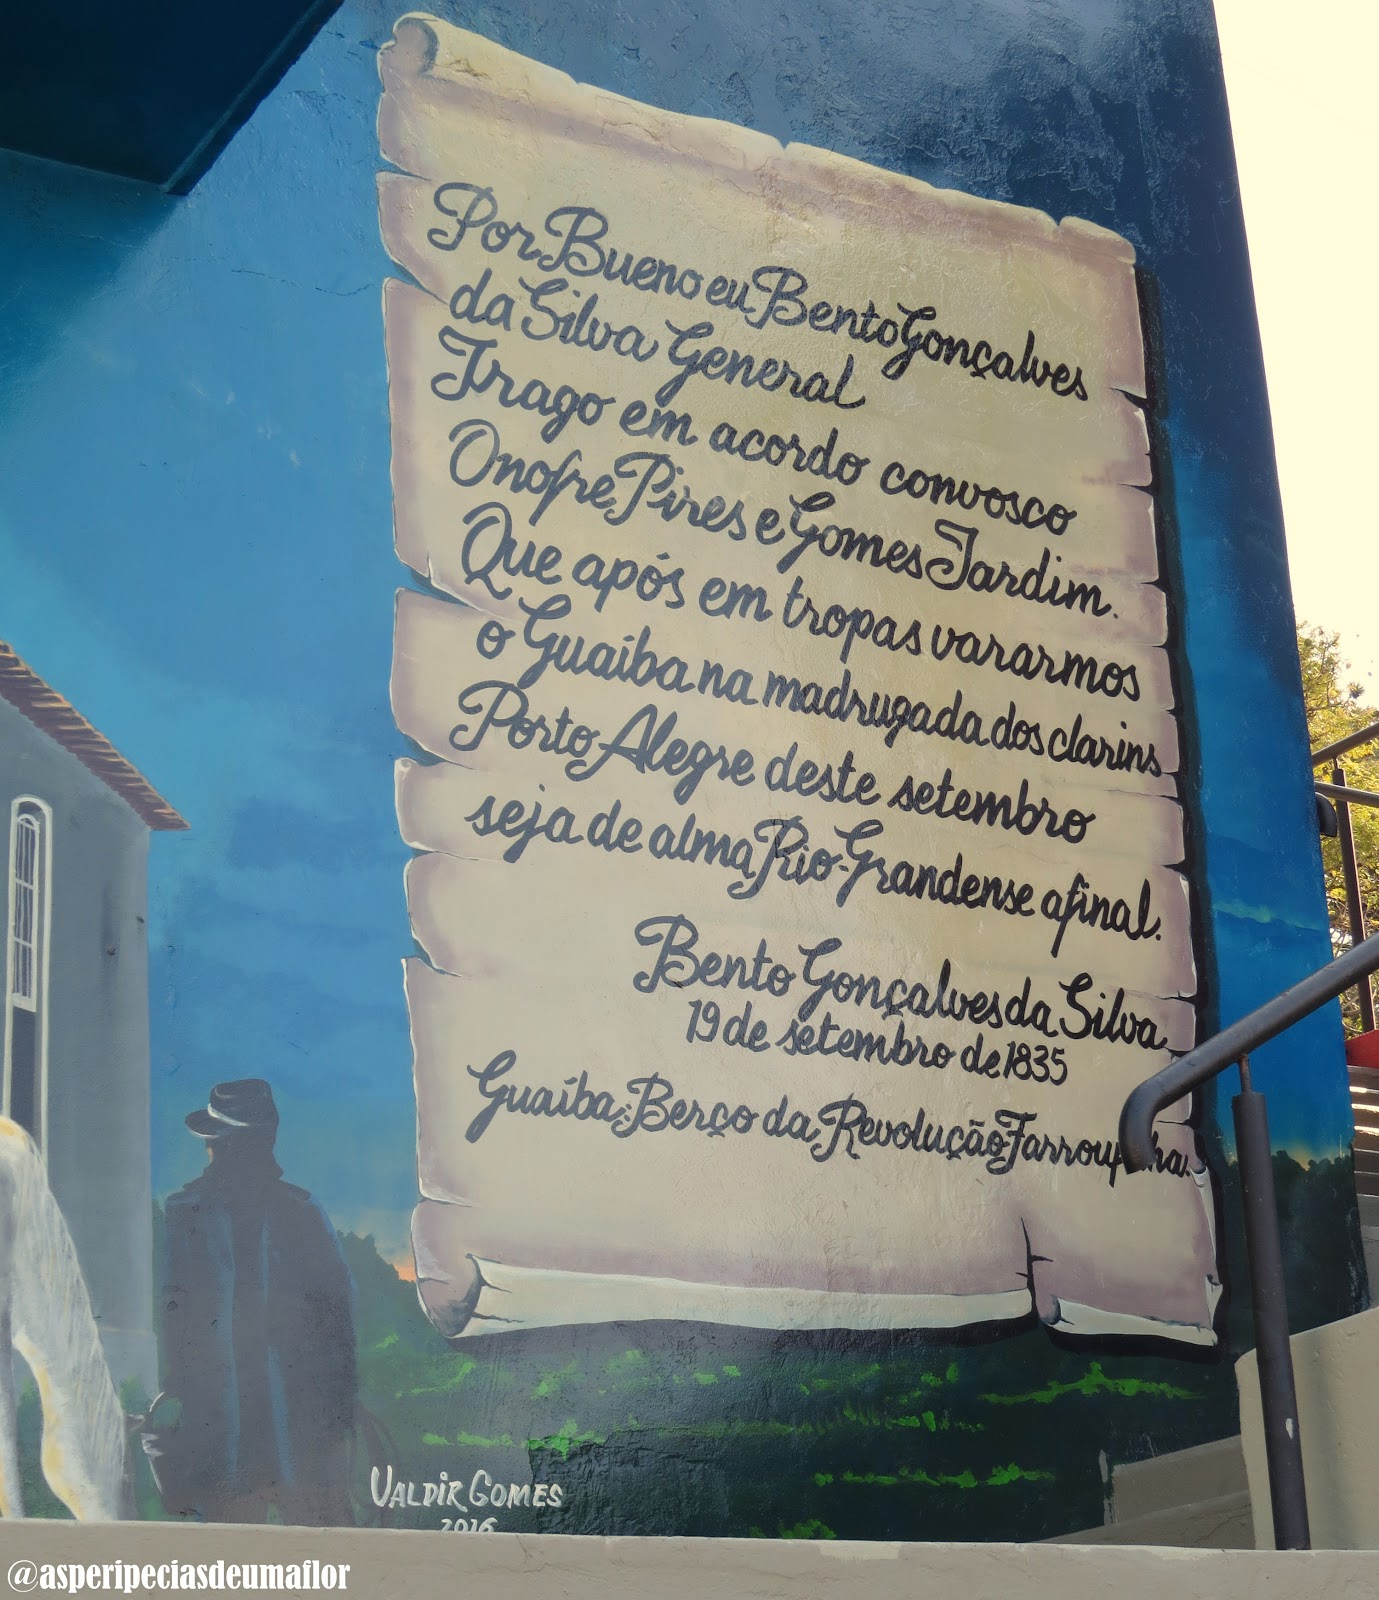 Por Bueno eu Bento Gonçalves
da Silva General
Trago em acordo convosco
Onofre Pires e Gomes Jardim.
Que após em tropas vararmos
o Guaíba na madrugada dos clarins
Porto Alegre deste setembro
seja de alma Rio-Grandense afinal.
Bento Gonçalves da Silva
19 de setembro de 1835
Guaíba: Berço da Revolução Farroupilha.
VALDIR GOMES
2016
@asperipeciasdeumaflor